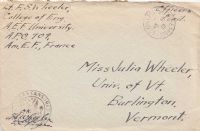 Lt. E. S. Wheeler,
College of Eng.
A.E.F. University.
A.P.O. 909,
Am. E. F., France
Officers
Mail.
Miss Julia Wheeler,
Univ. of Vt.
Burlington,
Vermont.